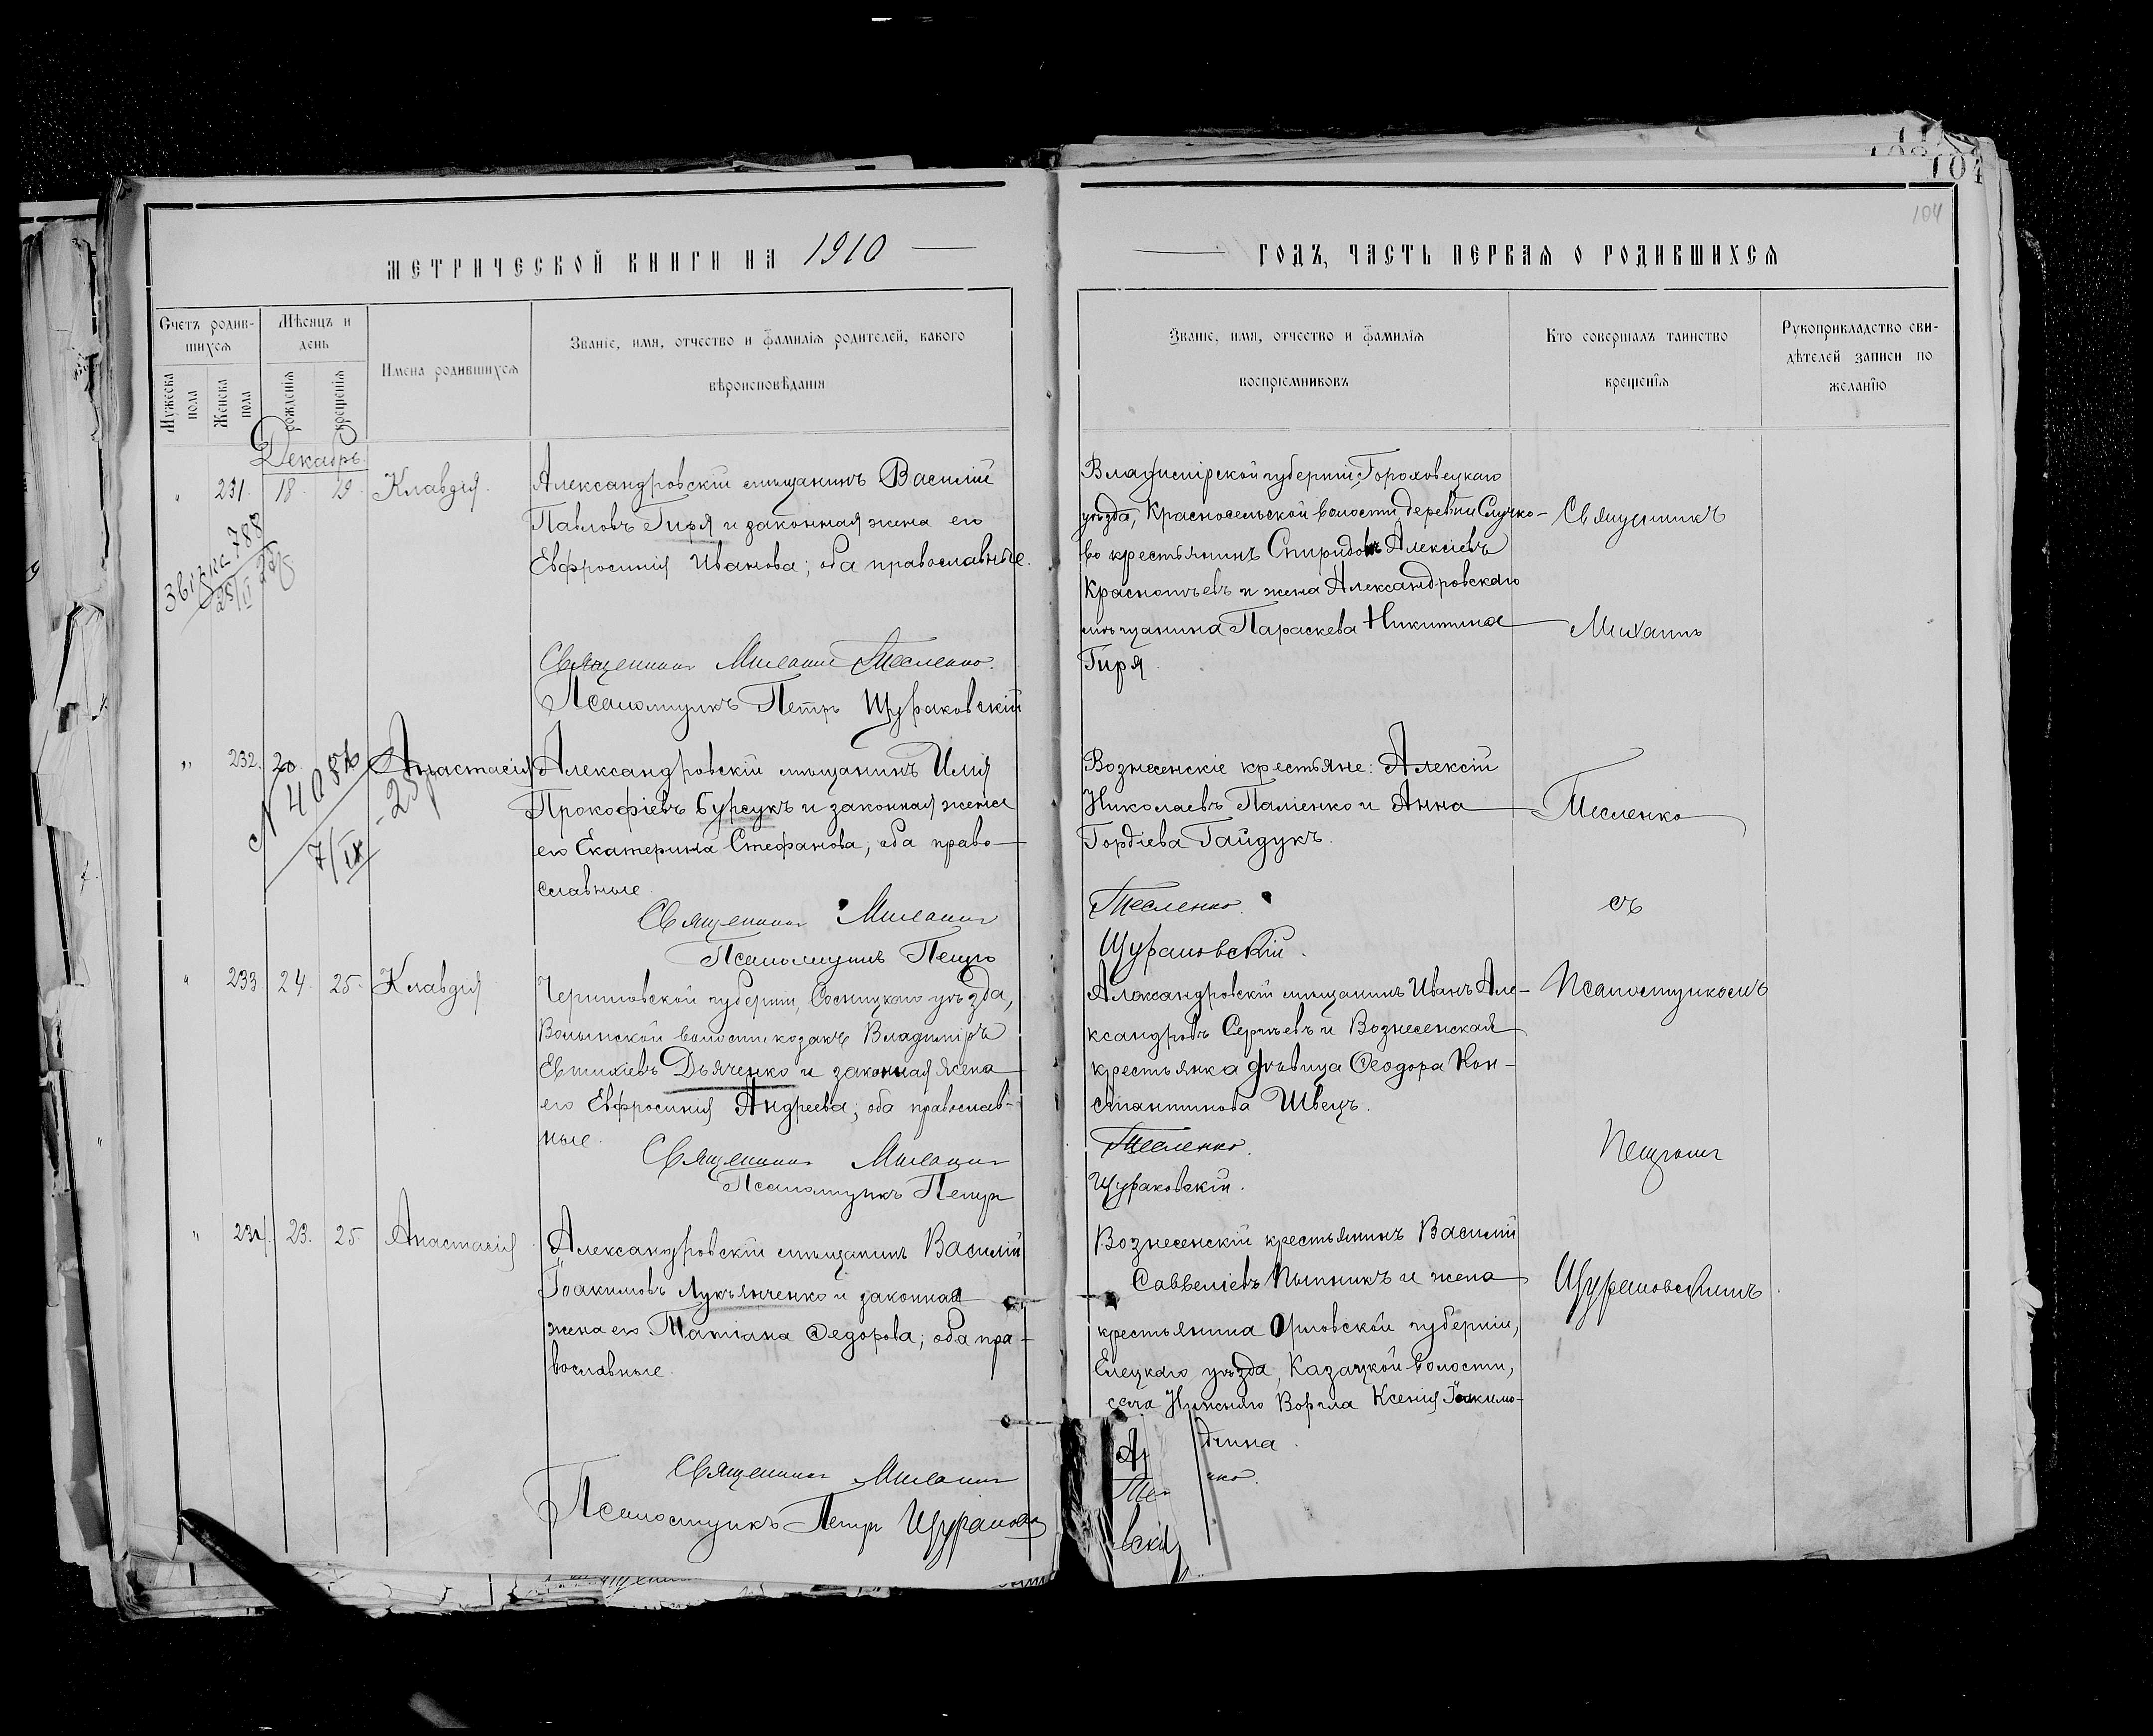 104
104
МЕТРИЧЕСКОЙ КНИГИ НА 1910
ГОДЪ, ЧАСТЬ ПЕРВАЯ О РОДИВШИХСЯ
Счетъ родив-
шихся
Мужеска пола
Женска пола
Мѣсяцъ и
день
рожденія
крещенія
Имена родившихся
Званіе, имя, отчество и фамилія родителей, какого
вѣроисповѣданія
Званіе, имя, отчество и фамилія
воспріемниковъ
Кто совершалъ таинство
крещенія
Рукоприкладство сви-
дѣтелей записи по
желанію
Декабрь
" 231. 18. 19. Клавдія.
Александровскій мѣщанинъ Василій
Павловъ Гиря и законная жена его
Евфросинія Иванова; оба православные.
Священникъ Михаилъ Тесленко.
Псаломщикъ Петръ Щураковскій
Владимірской губерніи, Гороховецкаго
уѣзда, Красносельской волости деревни Случко-
во крестьянинъ Спиридонъ Алексіевъ
и жена Александровскаго
мѣщанина Параскева Никитина
Гиря.
" 232. 20. Анастасія
N 4085
7/IX - 23
Александровскій мѣщанинъ Илія
Прокофіевъ Бурсукъ и законная жена
его Екатерина Стефанова; оба право-
славные.
Священникъ Михаилъ
Псаломщикъ Петръ
Вознесенскіе крестьяне: Алексій
Николаевъ Паліенко и Анна
Гордіева Гайдукъ.
Тесленко.
Щураковскій.
" 233 24. 25. Клавдія
Черниговской губерніи, Сосницкаго уѣзда,
Волынской волости козакъ Владиміръ
Евтихіевъ Дьяченко и законная жена
его Евфросинія Андреева; оба православ-
ные.
Священникъ Михаилъ
Псаломщикъ Петръ
Александровскій мѣщанинъ Иванъ Але-
ксандровъ Сергѣевъ и Вознесенская
крестьянка дѣвица Ѳеодора Кон-
стантинова Швецъ.
Тесленко.
Щураковскій.
" 234. 23. 25. Анастасія
Александровскій мѣщанинъ Василій
Іоакимовъ Лукьянченко и законная
жена его Татіана Ѳедорова; оба пра-
вославные.
Священникъ Михаилъ
Псаломщикъ Петръ Щурако
Вознесенскій крестьянинъ Василій
Савве и жена
крестьянина Орловской губерніи,
Елецкаго уѣзда, Казацкой волости,
села Нижняго Воргла Ксенія Іоакимо-
нко.
вскій
Священникъ
Михаилъ
Тесленко
съ
Псаломщикомъ
Петромъ
Щураковскимъ.